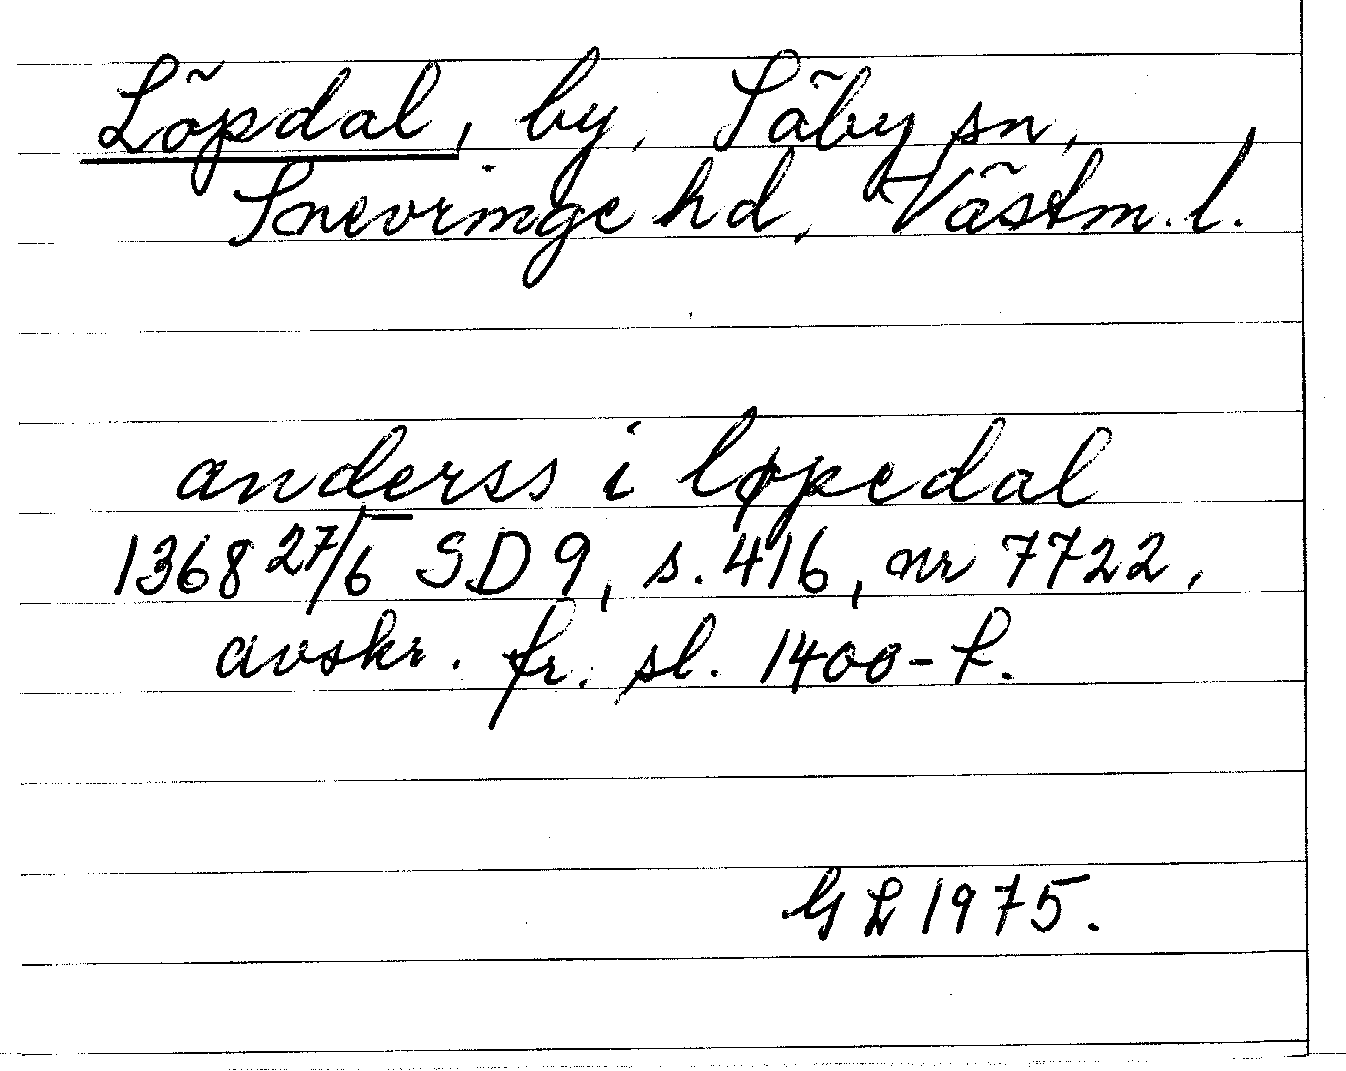 Löpdal, by, Säby sn,
Snevringe hd, Västm. l.
anderss i løpedal
1368 27/6 SD 9, s. 416, nr 7722,
avskr. fr. sl. 1400-t.
GL 1975.